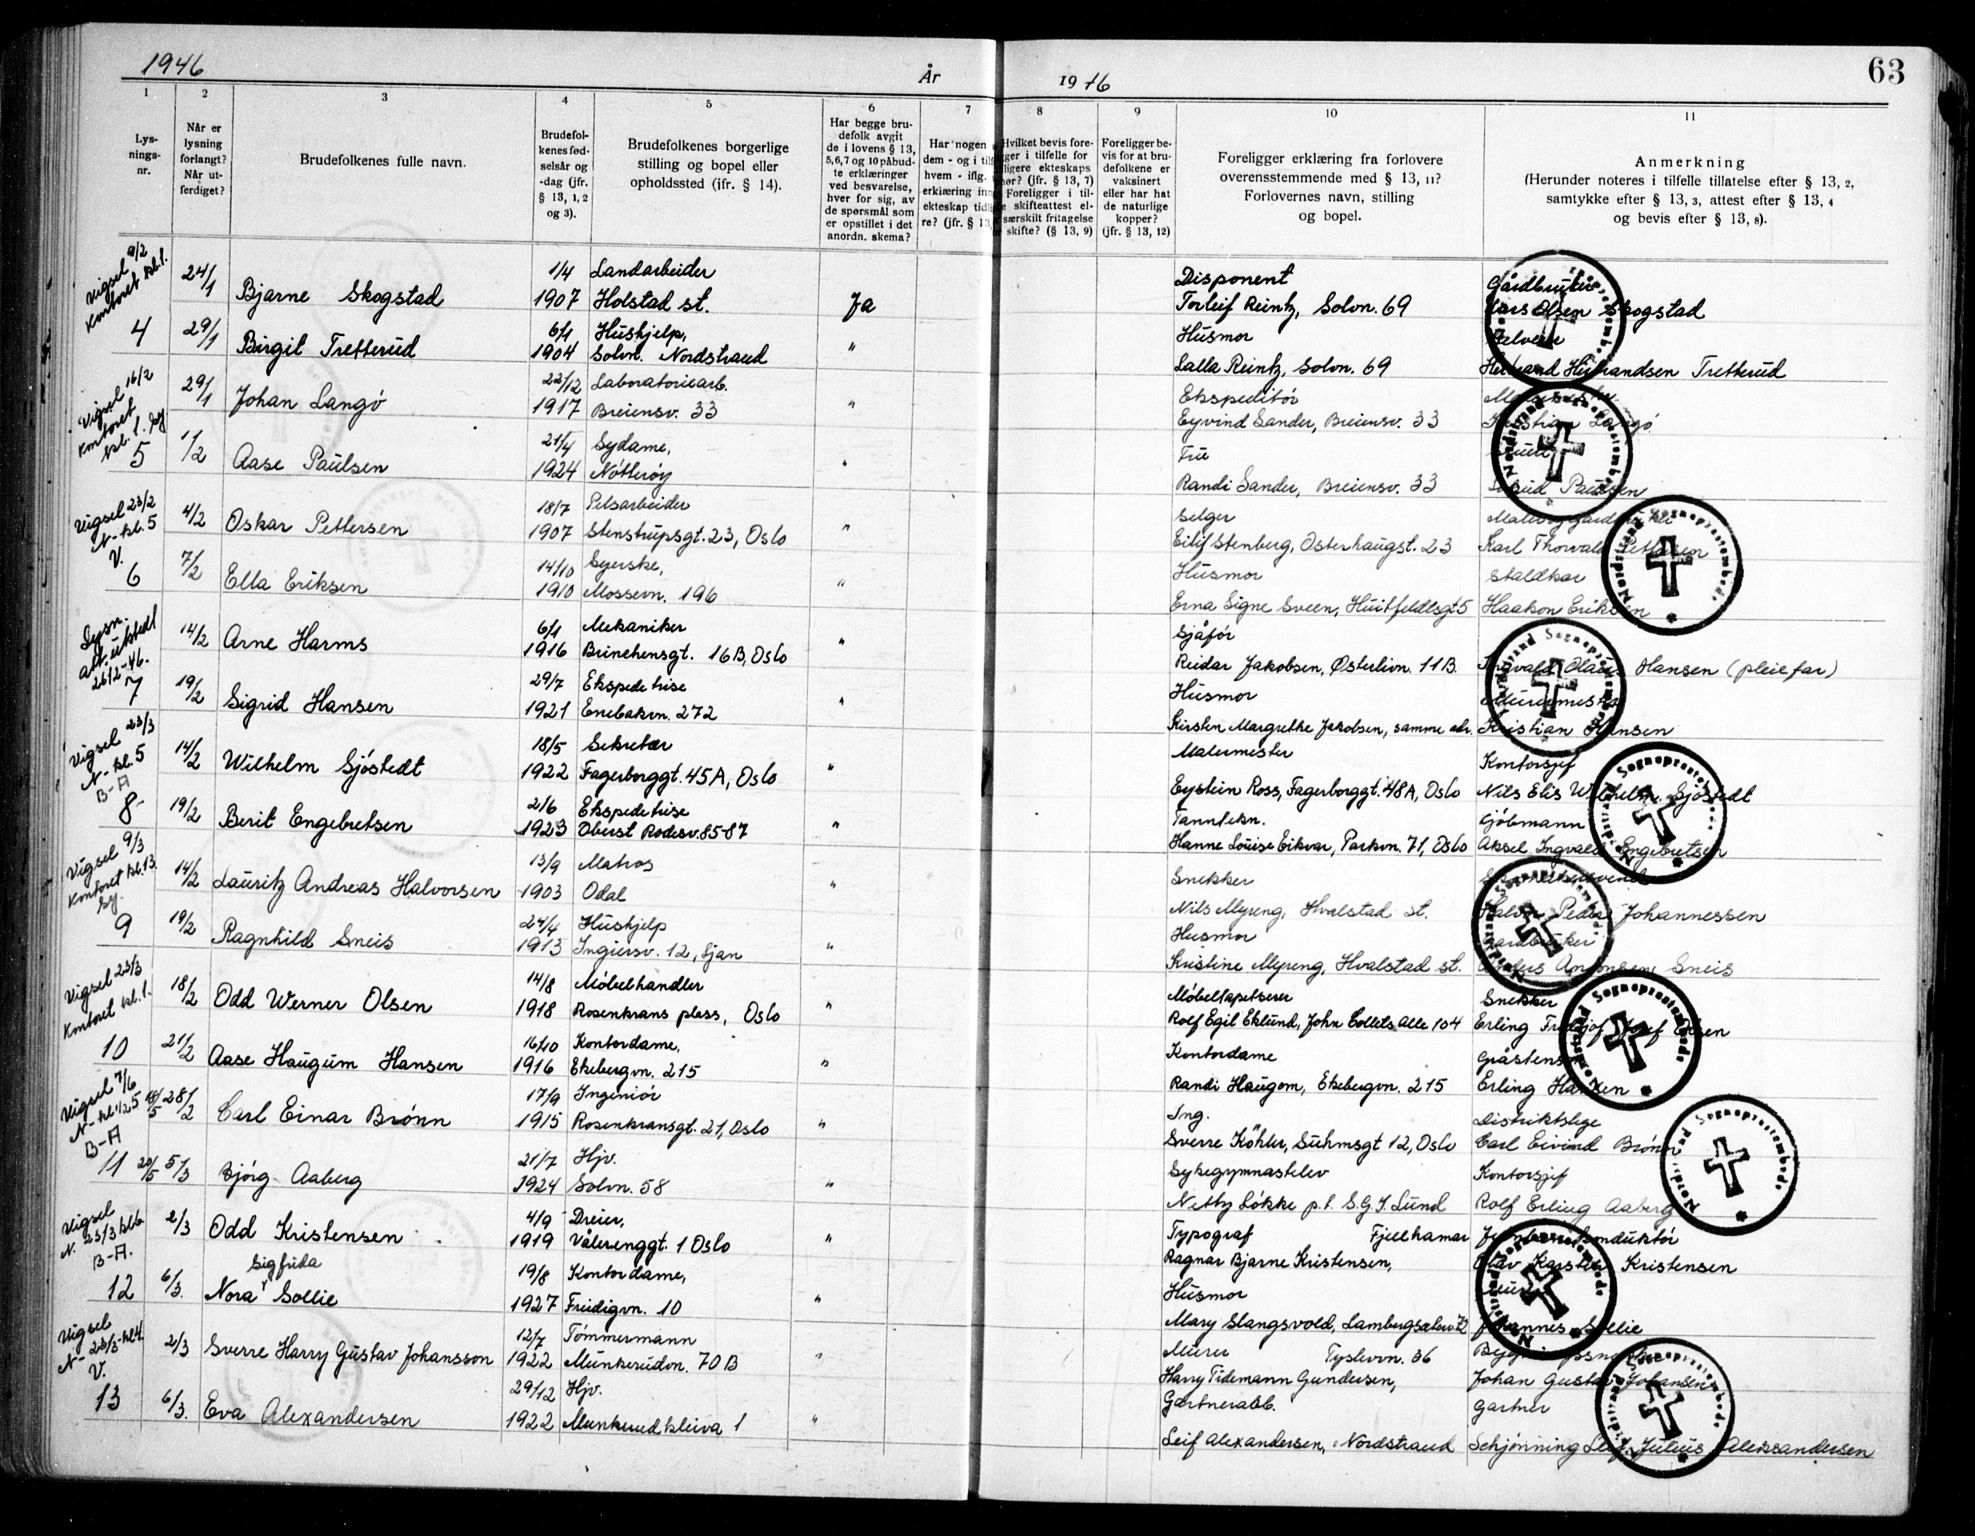 1946 År 1946 63
1 2 3 4 5 6 7 8 9 10 11
Lys-
nings-
nr.
Når er
lysning
forlangt?
Når ut-
ferdiget?
Brudefolkenes fulle navn.
Brudefol-
kenes fød-
selsår og
-dag (jfr.
§ 13, 1, 2
og 3).
Brudefolkenes borgerlige
stilling og bopel eller
opholdssted (ifr. § 14).
Har begge bru-
defolk avgit
de i lovens § 13,
5,6,7 og 10 påbud-
te erklæringer
ved besvarelse,
hver for sig, av
de spørsmål som
er opstillet i det
anordn. skema?
Har nogen
dem - og i tilf
hvem - iflg.
erklæring inn
ekteskap tidli
re? (jfr. § 13,
Hvilket bevis fore-
ger i tilfelle for
ligere ekteskaps
hør? (jfr. § 13, 7)
Foreligger i til-
e skifteattest el-
særskilt fritagelse
skifte? (§ 13, 9)
Foreligger be-
vis for at bru-
defolkene er
vaksinert
eller har hat
de naturlige
kopper?
(jfr. § 13, 12)
Foreligger erklæring fra forlovere
overensstemmende med § 13, 11?
Forlovernes navn, stilling
og bopel.
Anmerkning
(Herunder noteres i tilfelle tillatelse efter § 13, 2,
samtykke efter § 13, 3, attest efter § 13, 4
og bevis efter § 13, 8).
Vigsel 9/2
Kontoret kl. 1.
24/1 Bjarne Skogstad 1/4 1907 Landarbeider
Holstad st. Ja Disponent
Torleif Reintz, Solvn. 69 Gårdbruker
Lars Olsen Skogstad
4 29/1 Birgit Tretterud 6/4 1904 Hushjelp,
Solvn. Nordstrand " Husmor
Lalla Reintz, Solvn. 69
Hilmand Hilmandsen Tretterud
Vigsel 16/2
Kontoret
kl. 1. Sy
29/1 Johan Langö 22/12 1917 Laboratoriearb.
Breiensv. 33 " Ekspeditör
Eyvind Sander, Breiensv. 33
Kristian Langö
5 1/2 Aase Paulsen 21/4 1924 Sydame,
Nötteröy " Fru
Randi Sander, Breiensv. 33
Paulsen
Vigsel 23/2
N- kl. 5
V.
4/2 Oskar Pettersen 18/7 1907 Pelsarbeider
Stenstrupsgt. 23, Oslo " Selger
Eilif Stenberg, Osterhaugst. 23
Karl Thorvald Pettersen
6 7/2 Ella Eriksen 14/10 1910 Syerske,
Mossevn. 196 " Husmor
Erna Signe Sveen, Huitfeldtsgt 5 Staldkar
Haakon Eriksen
Lysn.
att. utstedt
26/2-46.
14/2 Arne Harms 6/1 1916 Mekaniker
Brinchensgt. 16 B, Oslo " Sjåför
Reidar Jakobsen, Østerlivn. 11 B Ingvald Olaus Hansen (pleiefar)
7 19/2 Sigrid Hansen 29/7 1921 Ekspeditrise
Enebakvn. 272 " Husmor
Kirsten Margrethe Jakobsen, samme adr. Murermester
Kristian Hansen
Vigsel 23/3
N- kl. 5
B-A
14/2 Wilhelm Sjöstedt 18/5 1922 Sekretær
Fagerborggt. 45 A, Oslo " Malermester
Eystein Ross, Fagerborggt. 48 A, Oslo Kontorsjef
Nils Elis Wilhelm Sjöstedt
8- 19/2 Berit Engebretsen 2/6 1923 Ekspeditrise
Oberst Rodesv. 85-87 " Tanntekn.
Hanne Louise Eikvar, Parkvn. 71, Oslo Kjöbmann
Aksel Ingvald Engebretsen
Vigsel 9/3
Kontoret kl. 13.
Sy.
14/2 Lauritz Andreas Halvorsen 13/9 1903 Matros
Odal " Snekker
Nils Myreng, Hvalstad st.
Halvor Peder Johannessen
9 19/2 Ragnhild Sneis 24/4 1913 Hushjelp
Ingiersv. 12, Ljan " Husmor
Kristine Myreng, Hvalstad st. Gårdbruker
Anders Antonsen Sneis
Vigsel 23/3
Kontoret kl. 1.
18/2 Odd Werner Olsen 14/8 1918 Möbelhandler
Rosenkrans plass, Oslo " Möbeltapetserer
Rolf Egil Eklund, John Collets Alle 104 Snekker
Erling Fridtjof Josef Olsen
10 21/2 Aase Haugum Hansen 16/10 1916 Kontordame,
Ekebergvn. 215 " Kontordame
Randi Haugom, Ekebergvn. 215
Erling Hansen
Vigsel 7/6
N- kl. 1/2 5
B-A
18/5 28/2 Carl Einar Brönn 17/9 1915 Ingeniör
Rosenkransgt. 21, Oslo " Ing.
Sverre Köhler, Suhmsgt 12, Oslo Distriktslege
Carl Eivind Brönn
11 20/5 5/3 Björg Aaberg 21/7 1924 Hjv.
Solvn. 58 " Sykegymnastelev
Netty Lökke p.t. S.G.I. Lund Kontorsjef
Rolf Erling Aaberg
Vigsel
N. 23/3 kl 6
B-A.
2/3 Odd Kristensen 4/9 1919 Dreier,
Vålerenggt. 1 Oslo " Typograf Fjellhamar
Ragnar Bjarne Kristensen,
Olav Karsten Kristensen
12 6/3. Nora Sigfrida Sollie 19/8 1927 Kontordame,
Freidigvn. 10 " Husmor
Mary Slangsvold,
Johannes Sollie
Vigsel
N- 23/3- kl 4
V.
2/3 Sverre Harry Gustav Johansson 12/7 1922 Tömmermann
Munkerudvn. 70 B " Murer Tyslevn. 36
Harry Tidemann Gundersen,
Johan Gustav Johansen
13 6/3. Eva Alexandersen 29/12 1922 Hjv.
Munkerudkleiva 1 " Gartnerabb.
Leif Alexandersen, Nordstrand Gartner
Schjönning Leif Julius Alexsandersen
Nordstrand Sogneprestembede